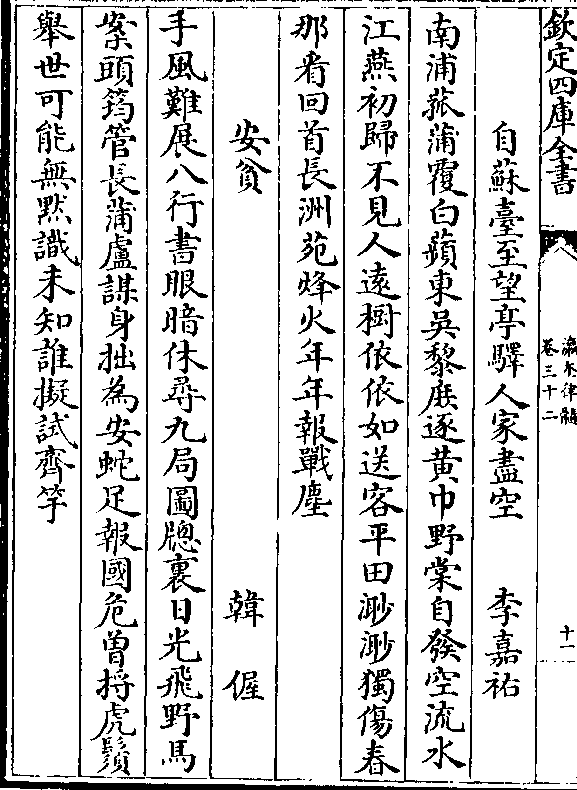 欽定四庫全書
瀛奎律髓
卷三十二
十一
自蘇臺至望亭驛人家盡空 李嘉祐
南浦菰蒲覆白蘋東吳黎庶逐黃巾野棠自發空流水
江燕初歸不見人遠樹依依如送客平田渺渺獨傷春
那看回首長洲苑烽火年年報戰塵
安貧 韓偓
手風難展八行書眼暗休尋九局圖牕裏日光飛野馬
案頭筠管長蒲盧謀身拙為安蛇足報國危曽捋虎鬚
舉世可能無默識未知誰擬試齊竽